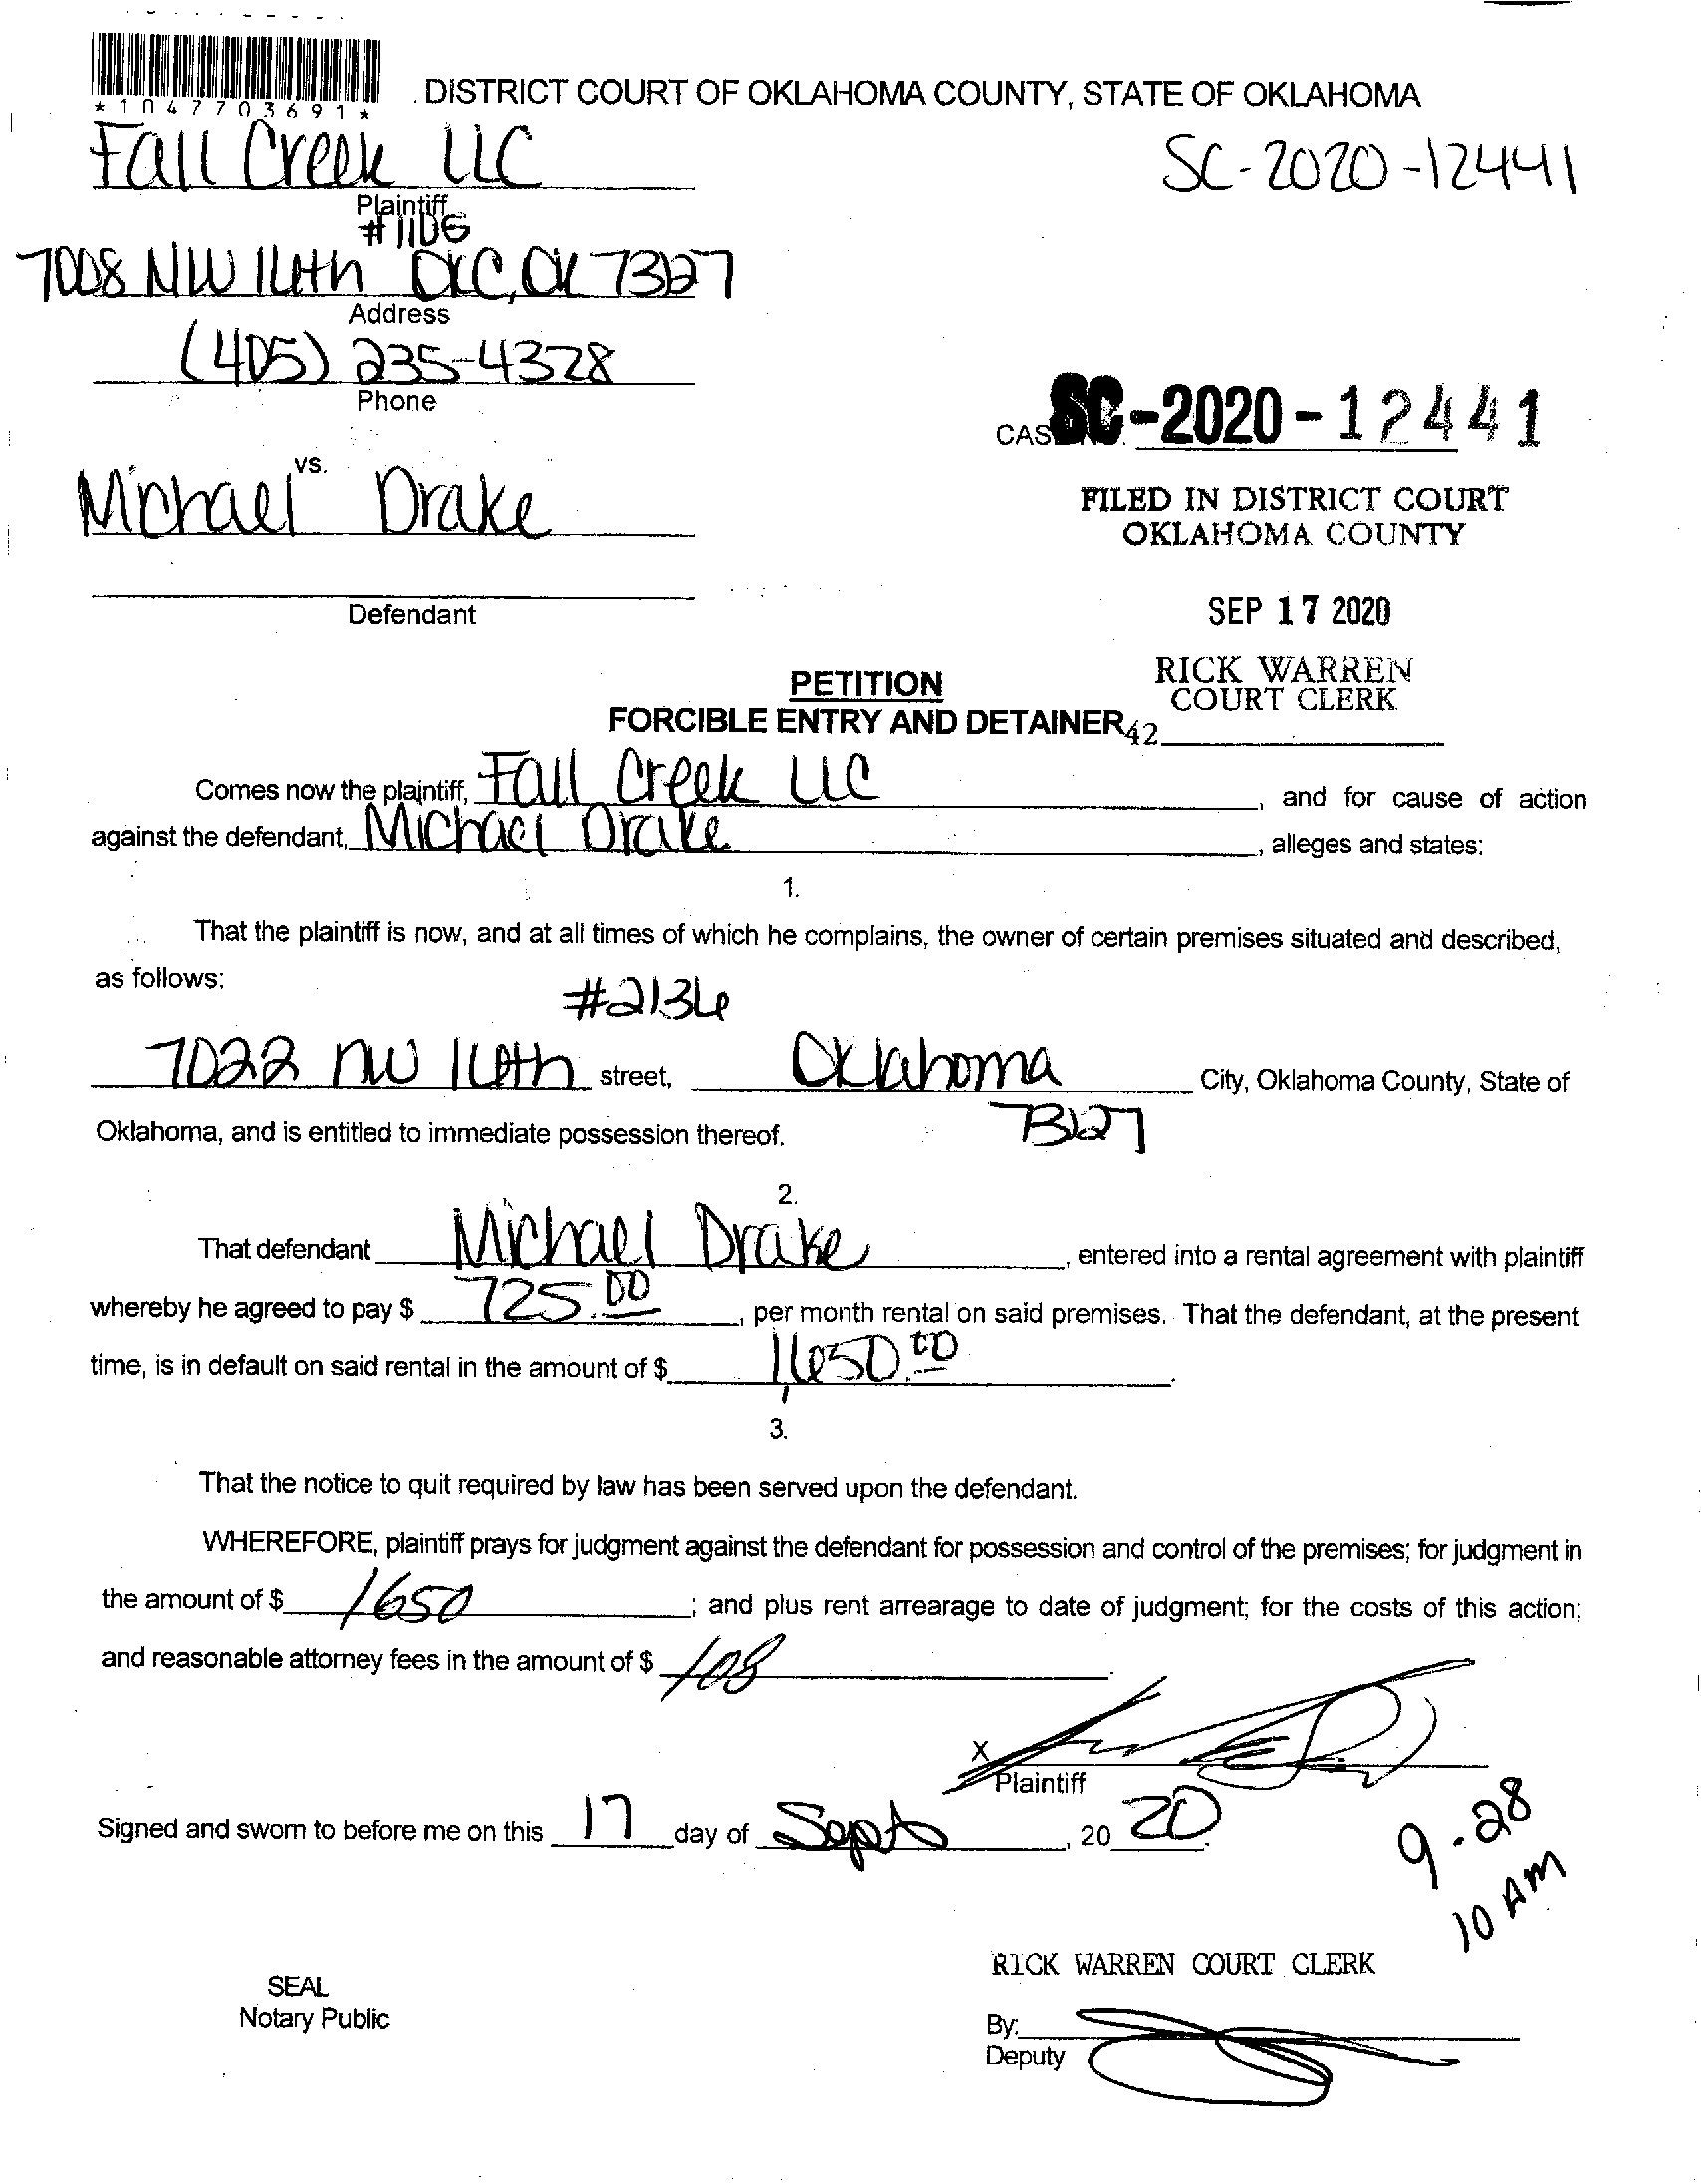 *1047703691*
DISTRICT COURT OF OKLAHOMA COUNTY, STATE OF OKLAHOMA
Fall Creek LLC
SC-2020-12441
Plaintiff
#1106
7008 NW 16th OKC, OK 73127
Address
(405) 235-4328
Phone
CASE NO. SC-2020-12441
vs.
Michael Drake
FILED IN DISTRICT COURT
OKLAHOMA COUNTY
Defendant
SEP 17 2020
RICK WARREN
COURT CLERK
PETITION
FORCIBLE ENTRY AND DETAINER
42
Comes now the plaintiff, Fall Creek LLC, and for cause of action
against the defendant, Michael Drake, alleges and states:
1.
That the plaintiff is now, and at all times of which he complains, the owner of certain premises situated and described,
as follows:
#2136
7022 NW 16th street, Oklahoma City, Oklahoma County, State of
73127
Oklahoma, and is entitled to immediate possession thereof.
2.
That defendant Michael Drake, entered into a rental agreement with plaintiff
whereby he agreed to pay $ 725.00, per month rental on said premises. That the defendant, at the present
time, is in default on said rental in the amount of $ 1,650.00.
3.
That the notice to quit required by law has been served upon the defendant.
WHEREFORE, plaintiff prays for judgment against the defendant for possession and control of the premises; for judgment in
the amount of $ 1650; and plus rent arrearage to date of judgment; for the costs of this action;
and reasonable attorney fees in the amount of $ 108.
X
Plaintiff
Signed and sworn to before me on this 17 day of Sept, 2020.
9-28
10 AM
RICK WARREN COURT CLERK
SEAL
Notary Public
By:
Deputy